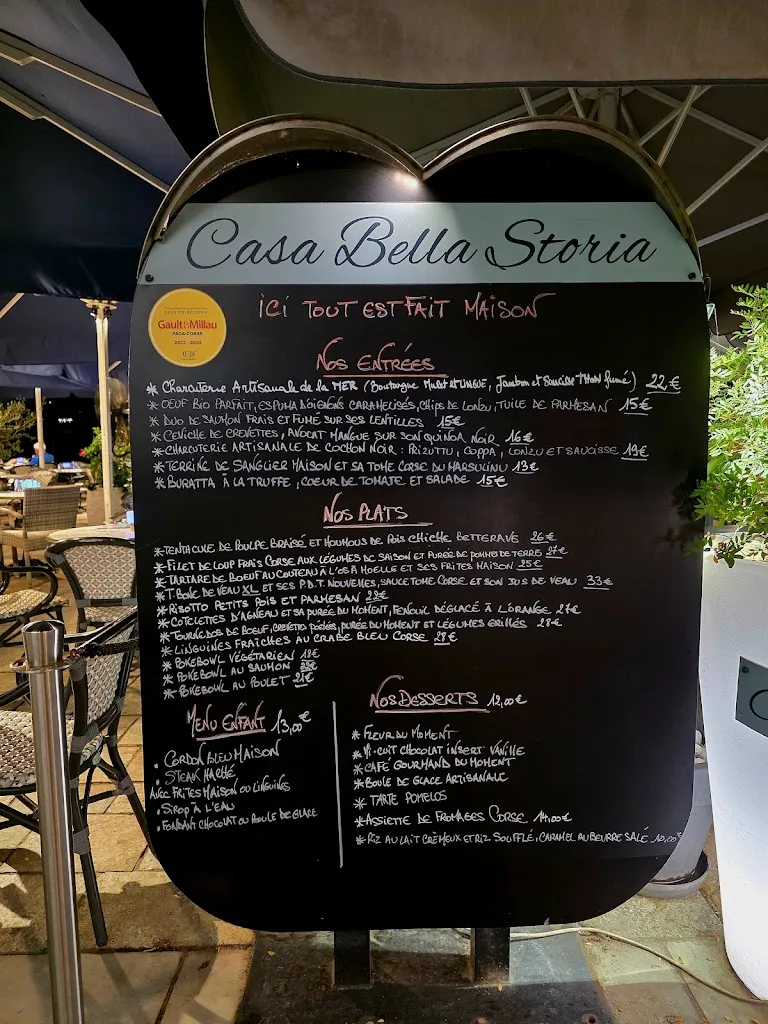 Casa Bella Storia
ICI TOUT EST FAIT MAISON
Gault&Millau
PACA-CORSE
2023 - 2024
NOS ENTRÉES
* Charcuterie Artisanale de la MER (Boutargue Mulet et LINGUE, Jambon et Saucisse THON fumé) 22€
* OEUF BIO PARFAIT, ESPUMA D'OIGNONS CARAMELISÉS, CHIPS DE LONZU, TUILE DE PARMESAN 15€
* DUO DE SAUMON FRAIS ET FUMÉ SUR SES LENTILLES 15€
* CEVICHE DE CREVETTES, AVOCAT MANGUE SUR SON QUINOA NOIR 16€
* CHARCUTERIE ARTISANALE DE COCHON NOIR : PRIZUTTU, COPPA, LONZU ET SAUCISSE 19€
* TERRINE DE SANGLIER MAISON ET SA TOME CORSE DU MARSULINU 13€
* BURATTA À LA TRUFFE, COEUR DE TOMATE ET SALADE 15€
NOS PLATS
* TENTACULE DE POULPE BRAISÉ ET HOUMOUS DE POIS CHICHE BETTERAVE 26€
* FILET DE LOUP FRAIS CORSE AUX LÉGUMES DE SAISON ET PURÉE DE POMMES DE TERRE 27€
* TARTARE DE BOEUF AU COUTEAU À L'OS À MOELLE ET SES FRITES MAISON 25€
* T.BONE DE VEAU XL ET SES P.D.T. NOUVELLES, SAUCE TOME CORSE ET SON JUS DE VEAU 33€
* RISOTTO PETITS POIS ET PARMESAN
* COTELETTES D'AGNEAU ET SA PURÉE DU MOMENT, FENOUIL DÉGLACÉ À L'ORANGE 27€
* TOURNEDOS DE BOEUF, POÊLÉS, PURÉE DU MOMENT ET LÉGUMES GRILLÉS 28€
* LINGUINES FRAÎCHES AU CRABE BLEU CORSE 28€
* POKEBOWL VÉGÉTARIEN 18€
* POKEBOWL AU SAUMON
* POKEBOWL AU POULET 21€
MENU ENFANT 13,00€
. CORDON BLEU MAISON
. STEAK HACHÉ
AVEC FRITES MAISON OU LINGUINES
. SIROP À L'EAU
. FONDANT CHOCOLAT OU BOULE DE GLACE
NOS DESSERTS 12,00€
* FLEUR DU MOMENT
* MI-CUIT CHOCOLAT INSERT VANILLE
* CAFÉ GOURMAND DU MOMENT
* BOULE DE GLACE ARTISANALE
* TARTE POMELOS
* ASSIETTE DE FROMAGES CORSE 14,00€
* RIZ AU LAIT CRÈMEUX ET RIZ SOUFFLÉ, CARAMEL AU BEURRE SALÉ 10,00€